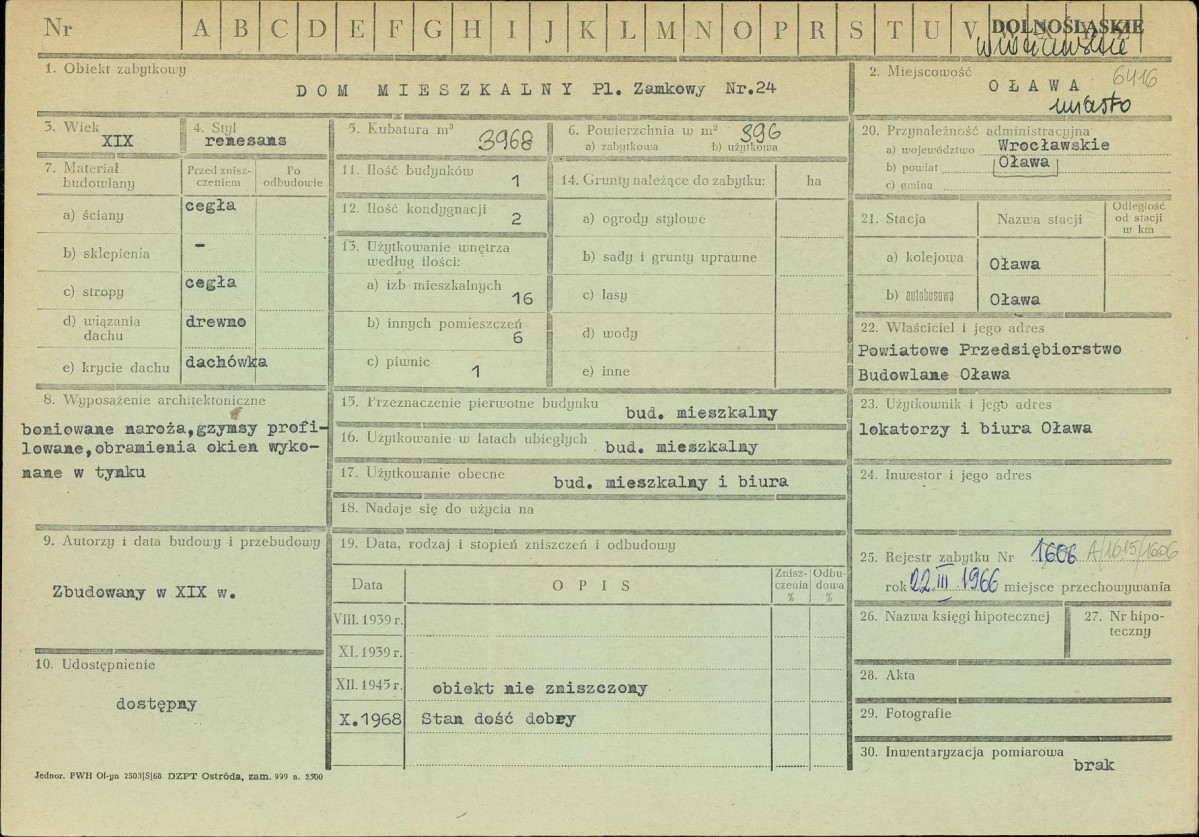 Nr A B C D E F G H I J K L M N O P R S T U V
DOLNOŚLĄSKIE
wrocławskie
1. Obiekt zabytkowy
DOM MIESZKALNY Pl. Zamkowy Nr.24
2. Miejscowość
6416
OŁAWA
miasto
3. Wiek
XIX
4. Styl
renesans
5. Kubatura m³
3968
6. Powierzchnia w m²
396
a) zabytkowa b) użytkowa
20. Przynależność administracyjna
a) województwo Wrocławskie
b) powiat Oława
c) gmina
7. Materiał
budowlany
Przed znisz-
czeniem
Po
odbudowie
a) ściany cegła
b) sklepienia -
c) stropy cegła
d) wiązania
dachu
drewno
e) krycie dachu dachówka
11. Ilość budynków 1
12. Ilość kondygnacji 2
13. Użytkowanie wnętrza
według ilości:
a) izb mieszkalnych 16
b) innych pomieszczeń 6
c) piwnic 1
14. Grunty należące do zabytku: ha
a) ogrody stylowe
b) sady i grunty uprawne
c) lasy
d) wody
e) inne
21. Stacja Nazwa stacji
Odległość
od stacji
w km
a) kolejowa Oława
b) autobusowa Oława
22. Właściciel i jego adres
Powiatowe Przedsiębiorstwo
Budowlane Oława
8. Wyposażenie architektoniczne
boniowane naroża,gzymsy profi-
lowane,obramienia okien wyko-
nane w tynku
15. Przeznaczenie pierwotne budynku bud. mieszkalny
16. Użytkowanie w latach ubiegłych bud. mieszkalny
17. Użytkowanie obecne bud. mieszkalny i biura
18. Nadaje się do użycia na
23. Użytkownik i jego adres
lokatorzy i biura Oława
24. Inwestor i jego adres
9. Autorzy i data budowy i przebudowy
Zbudowany w XIX w.
10. Udostępnienie
dostępny
19. Data, rodzaj i stopień zniszczeń i odbudowy
Data OPIS
Znisz-
czenia
%
Odbu-
dowa
%
VIII. 1939 r.
XI. 1939 r.
XII. 1945 r. obiekt nie zniszczony
X.1968 Stan dość dobry
25. Rejestr zabytku Nr 1606 A/1615/1606
rok 22.III 1966 miejsce przechowywania
26. Nazwa księgi hipotecznej
27. Nr hipo-
teczny
28. Akta
29. Fotografie
30. Inwentaryzacja pomiarowa
brak
Jednor. PWH Ol-yn 2503|S|68 DZPT Ostróda, zam. 999 n. 2500